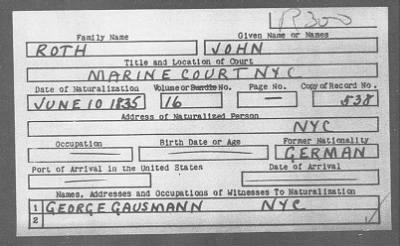 R300
Family Name Given Name or Names
ROTH JOHN
Title and Location of Court
MARINE COURT NYC
Date of Naturalization Volume or Bundle No. Page No. Copy of Record No.
JUNE 10 1835 16 — 538
Address of Naturalized Person
NYC
Occupation Birth Date or Age Former Nationality
GERMAN
Port of Arrival in the United States Date of Arrival
Names, Addresses and Occupations of Witnesses To Naturalization
1 GEORGE GAUSMANN NYC
2